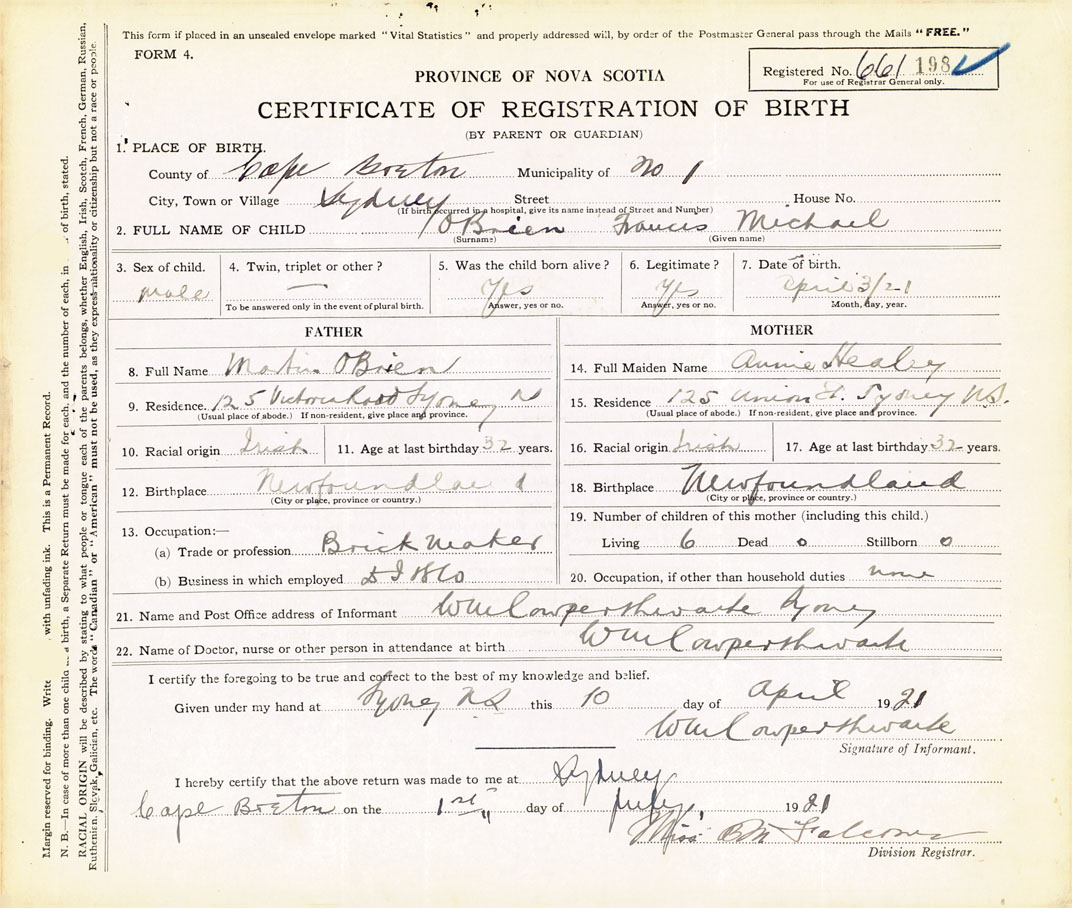 This form if placed in an unsealed envelope marked "Vital Statistics" and properly addressed will, by order of the Postmaster General pass through the Mails "FREE."
FORM 4.
Registered No. 661 198
For use of Registrar General only.
PROVINCE OF NOVA SCOTIA
CERTIFICATE OF REGISTRATION OF BIRTH
(BY PARENT OR GUARDIAN)
1. PLACE OF BIRTH.
County of Cape Breton Municipality of No 1
City, Town or Village Sydney Street House No.
(If birth occurred in a hospital, give its name instead of Street and Number)
2. FULL NAME OF CHILD O'Brien Francis Michael
(Surname) (Given name)
3. Sex of child. 4. Twin, triplet or other? 5. Was the child born alive? 6. Legitimate? 7. Date of birth.
male — Yes Yes April 3/21
To be answered only in the event of plural birth. Answer, yes or no. Answer, yes or no. Month, day, year.
FATHER
8. Full Name Martin OBrien
9. Residence. 125 Victoria Road Sydney N
(Usual place of abode.) If non-resident, give place and province.
10. Racial origin Irish 11. Age at last birthday 32 years.
12. Birthplace Newfoundland
(City or place, province or country.)
13. Occupation:—
(a) Trade or profession Brick Maker
(b) Business in which employed
MOTHER
14. Full Maiden Name Annie Healey
15. Residence 125 Union St. Sydney N.S.
(Usual place of abode.) If non-resident, give place and province.
16. Racial origin Irish 17. Age at last birthday 32 years.
18. Birthplace Newfoundland
(City or place, province or country.)
19. Number of children of this mother (including this child.)
Living 6 Dead 0 Stillborn 0
20. Occupation, if other than household duties none
21. Name and Post Office address of Informant Wm Cowperthwaite Sydney
22. Name of Doctor, nurse or other person in attendance at birth Wm Cowperthwaite
I certify the foregoing to be true and correct to the best of my knowledge and belief.
Given under my hand at Sydney NS this 10 day of April 1921
Wm Cowperthwaite
Signature of Informant.
I hereby certify that the above return was made to me at Sydney
Cape Breton on the 1st day of July, 1921
Miss B M Falconer
Division Registrar.
Margin reserved for binding. Write with unfading ink. This is a Permanent Record.
N. B.—In case of more than one child a birth, a Separate Return must be made for each, and the number of each, in of birth, stated.
RACIAL ORIGIN will be described by stating to what people or tongue each of the parents belongs, whether English, Irish, Scotch, French, German, Russian,
Ruthenien, Slovak, Galician, etc. The words "Canadian" or "American" must not be used, as they express nationality or citizenship but not a race or people.